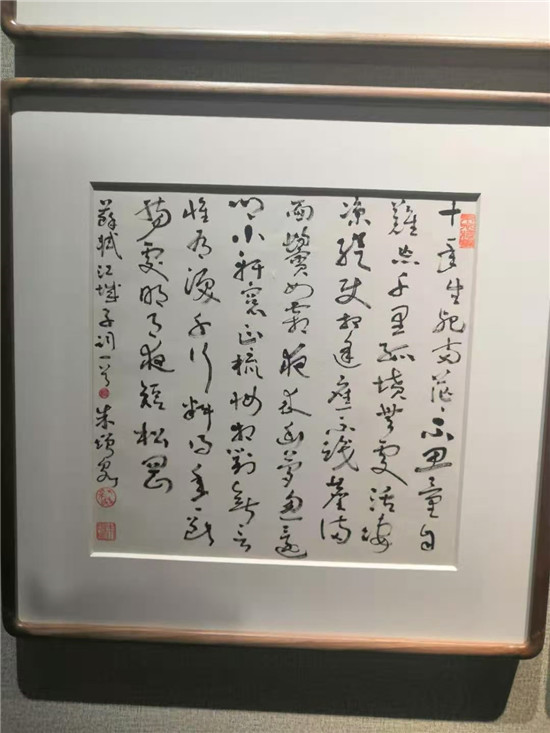 十年生死兩茫茫不思量自
難忘千里孤墳無處話淒
涼縱使相逢應不識塵滿
面鬢如霜夜來幽夢忽還
鄉小軒窗正梳妝相對無言
惟有淚千行料得年年斷
腸處明月夜短松岡
蘇軾江城子詞一首 朱頌